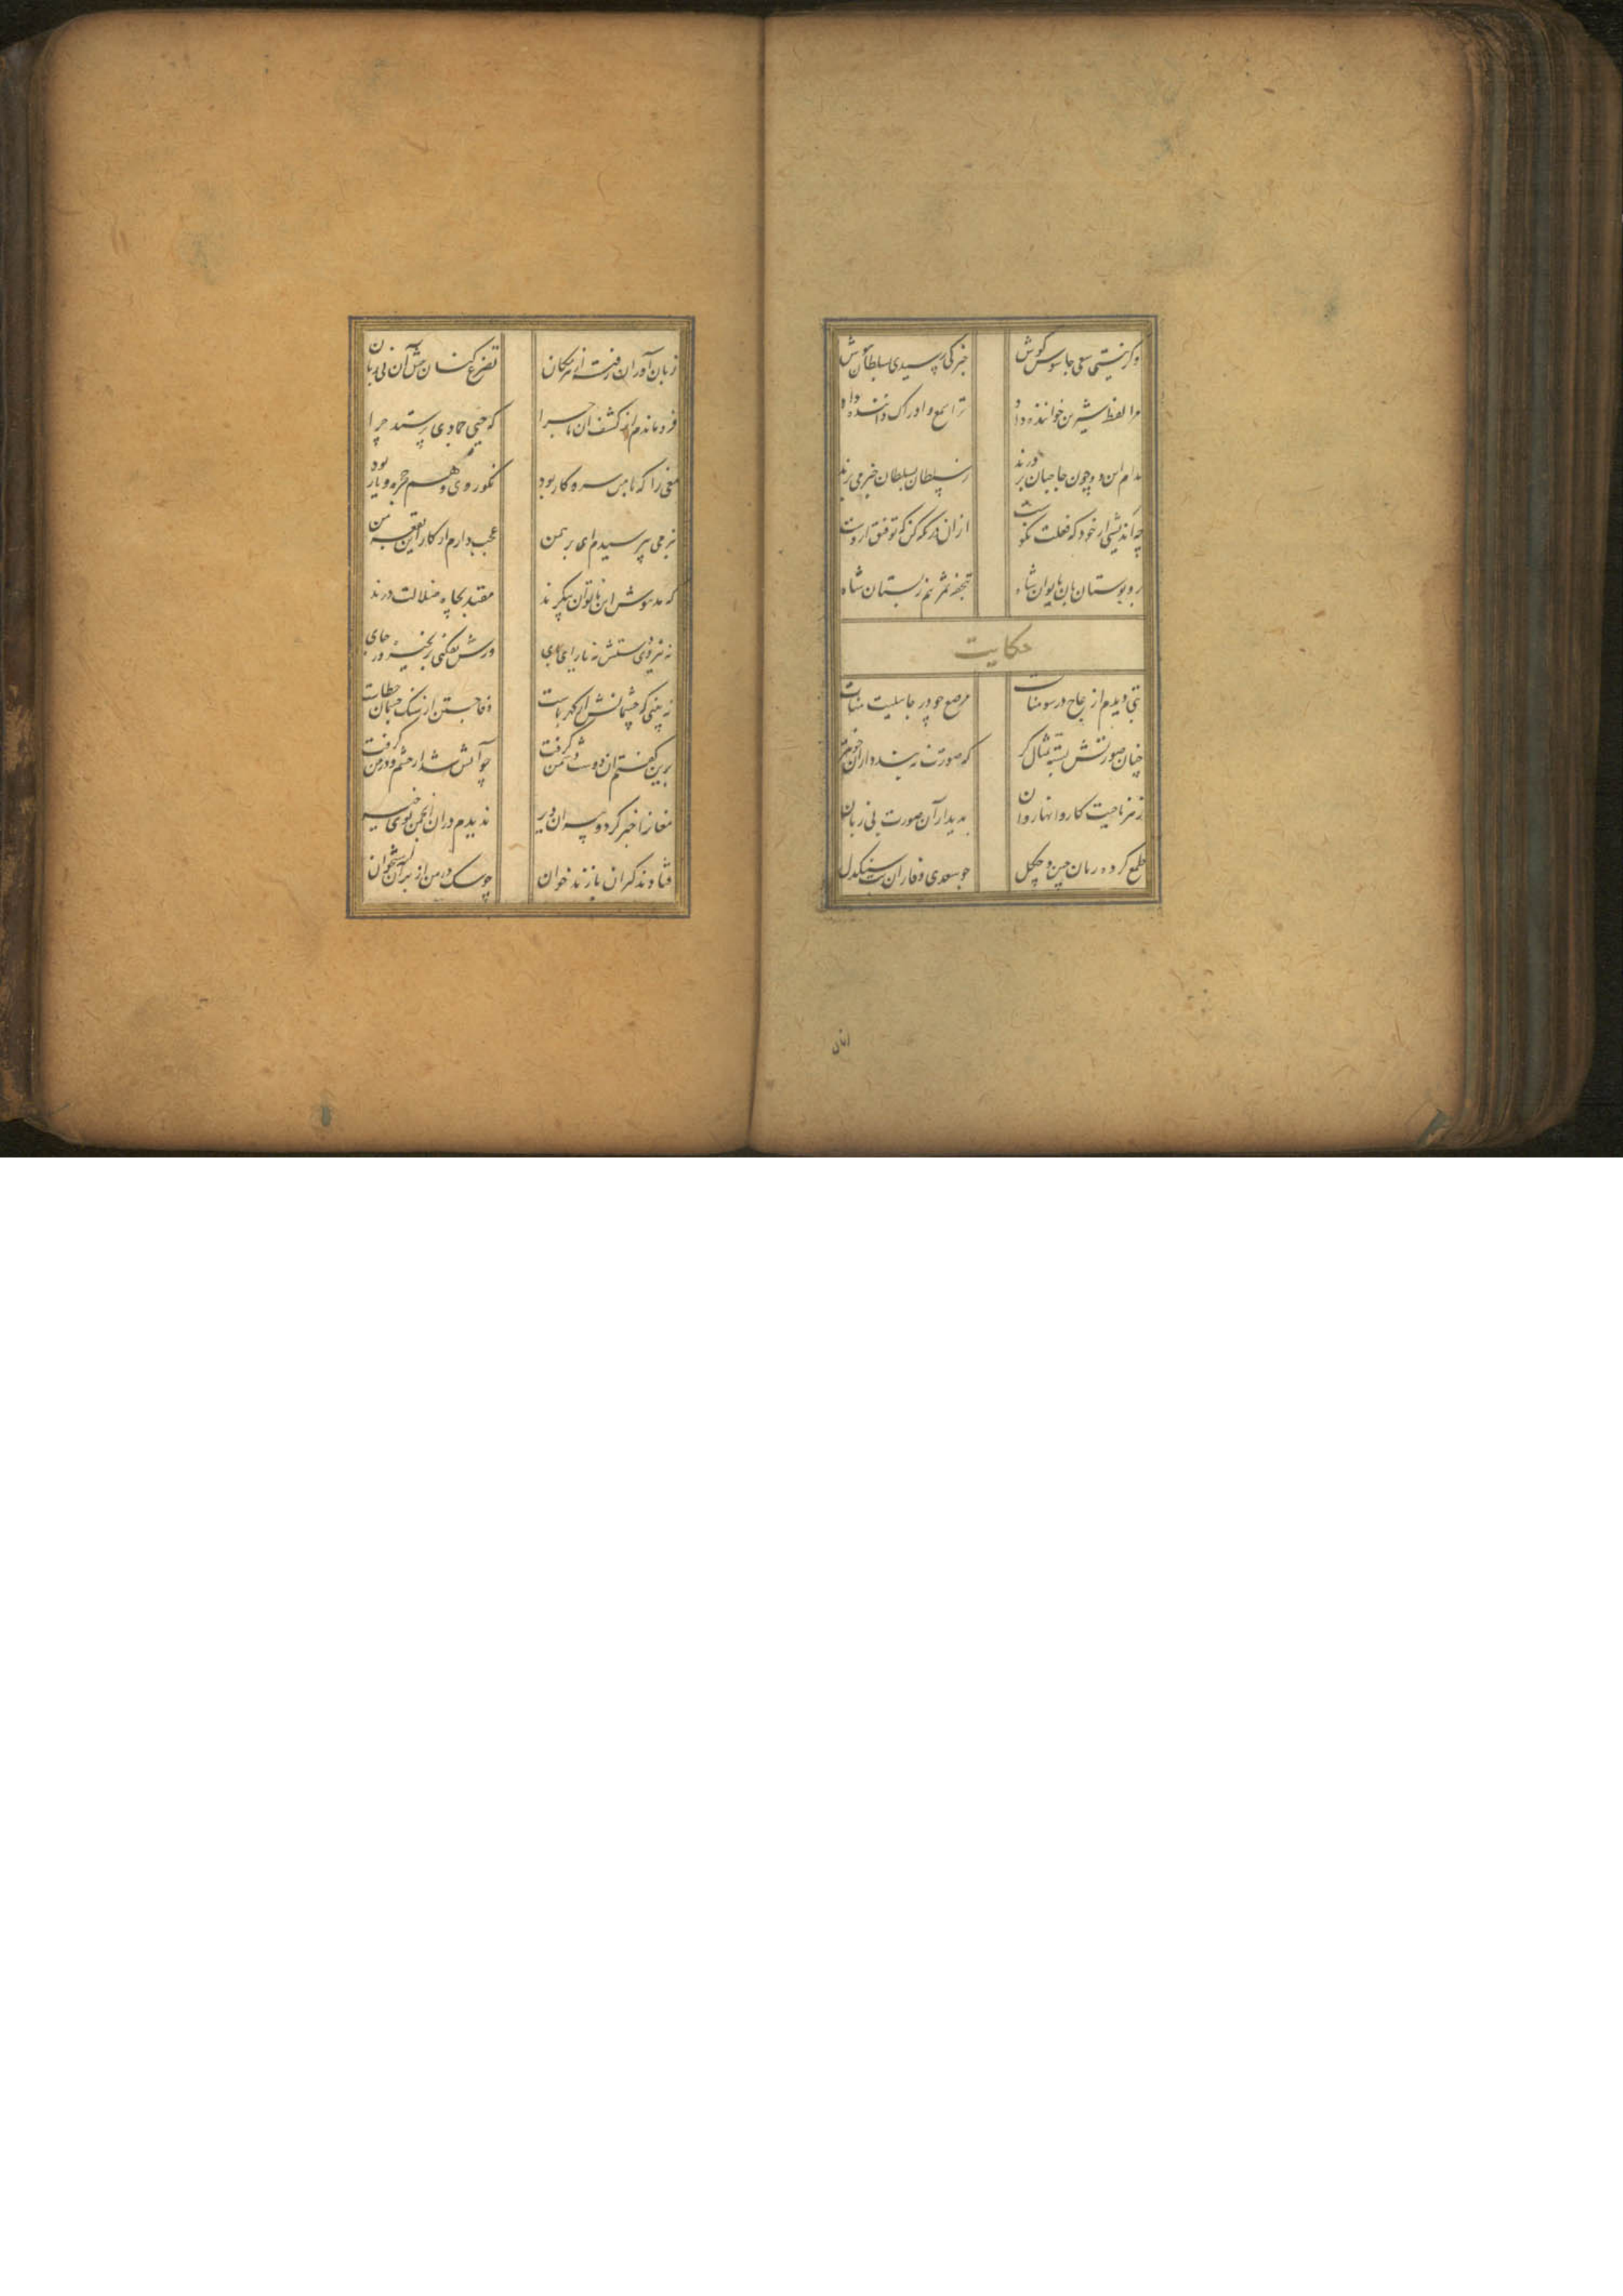 وگر نیستی سعی جاسوس گوش خبر کی رسیدی بسلطان هوش
مرا لفظ شیرین خواننده داد ترا سمع و ادراک داننده داد
مدام این دو چون حاجبان بر درند ز سلطان بسلطان خبر می برند
چه اندیشی از خود که فعلت نکوست ازان در نگه کن که توفیق اوست
برد بوستان بان بایوان شاه بتحفه ثمر هم ز بستان شاه
حکایت
بتی دیدم از عاج در سومنات مرصع چو در جاهلیت منات
چنان صورتش بسته تمثال گر که صورت نه بندد ازان خوبتر
ز هر ناحیت کاروانها روان بدیدار آن صورت بی روان
طمع کرده رایان چین و چگل چو سعدی وفا زان بت سنگدل
زبان آوران
زبان آوران رفته از هر مکان تضرع کنان پیش آن بی زبان
فرو ماندم از کشف آن ماجرا که حیی جمادی پرستد چرا
مغی را که با من سر و کار بود نکو روی و هم حجره و یار بود
بنرمی بپرسیدم ای برهمن عجب دارم از کار این بقعه من
که مدهوش این ناتوان پیکرند مقید بچاه ضلالت درند
نه نیروی دستش نه یارای پای ورش بفکنی بر نخیزد ز جای
نه بینی که چشمانش از کهرباست وفا جستن از سنگ چشمان خطاست
برین گفتم آن دوست دشمن گرفت چو آتش شد از خشم و در من گرفت
مغانرا خبر کرد و پیران دیر ندیدم دران انجمن روی خیر
فتادند گبران پازند خوان چو سگ در من از بهر آن استخوان